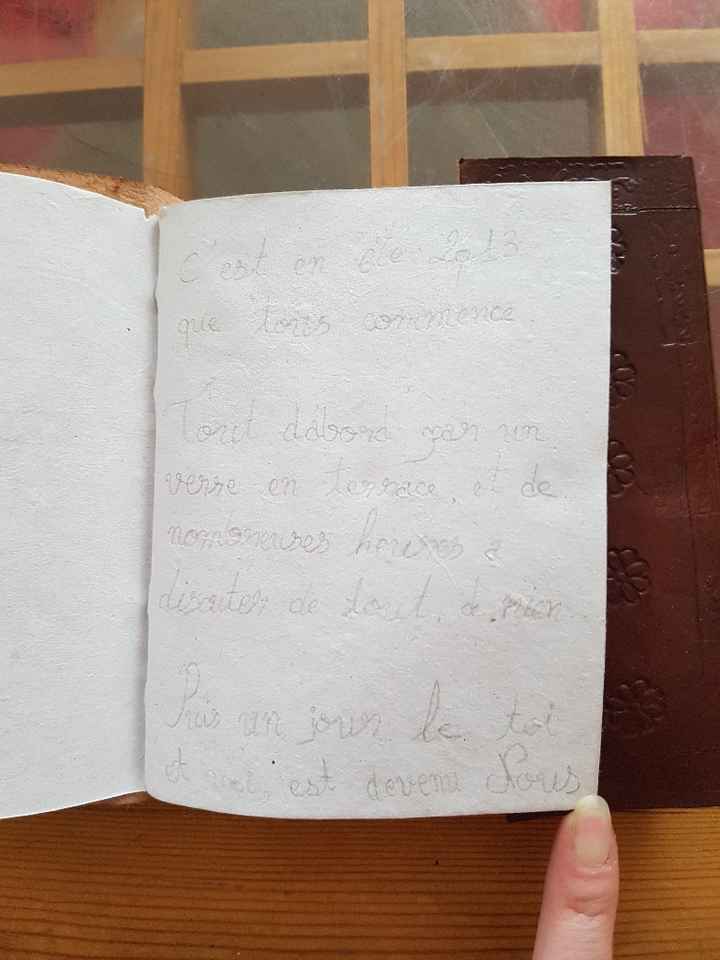 C'est en été 2013
que tous commence
Tout d'abord par un
verre en terrace, et de
nombreuses heures a
discuter de tout, de rien...
Puis un jour le toi
et moi, est devenu Nous